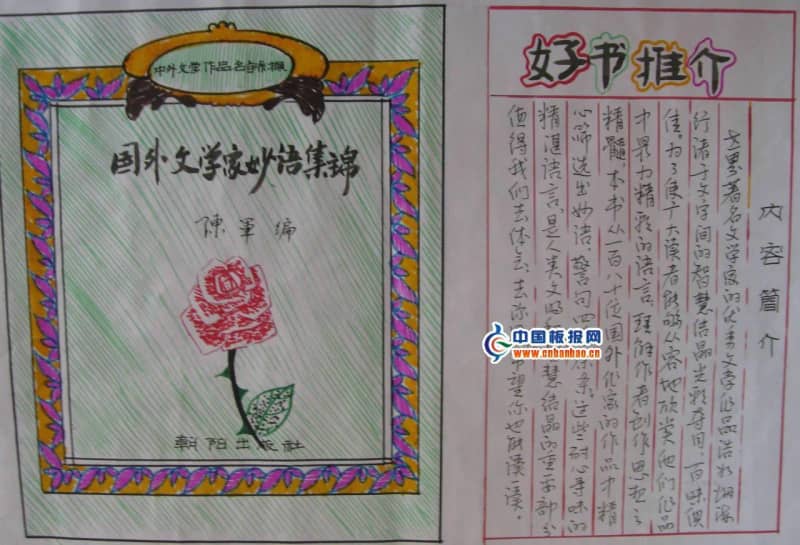 中外文学作品
国外文学家妙语集锦
陈军编
朝阳出版社
好书推介
内容简介
世界著名文学家的优秀文学作品浩如烟海
行诸于文字间的智慧结晶光彩夺目,百味俱
佳。为了使广大读者能够从容地欣赏他们作品
中最为精彩的语言,理解作者创作思想之
精髓,本书从一百八十位国外作家的作品中精
心筛选出妙语、警句四余条。这些耐心寻味的
精湛语言,是人类文明和慧结晶的重要部分,
值得我们去体会、去希望你也能读一读。
中国板报网
www.cnbanbao.cn